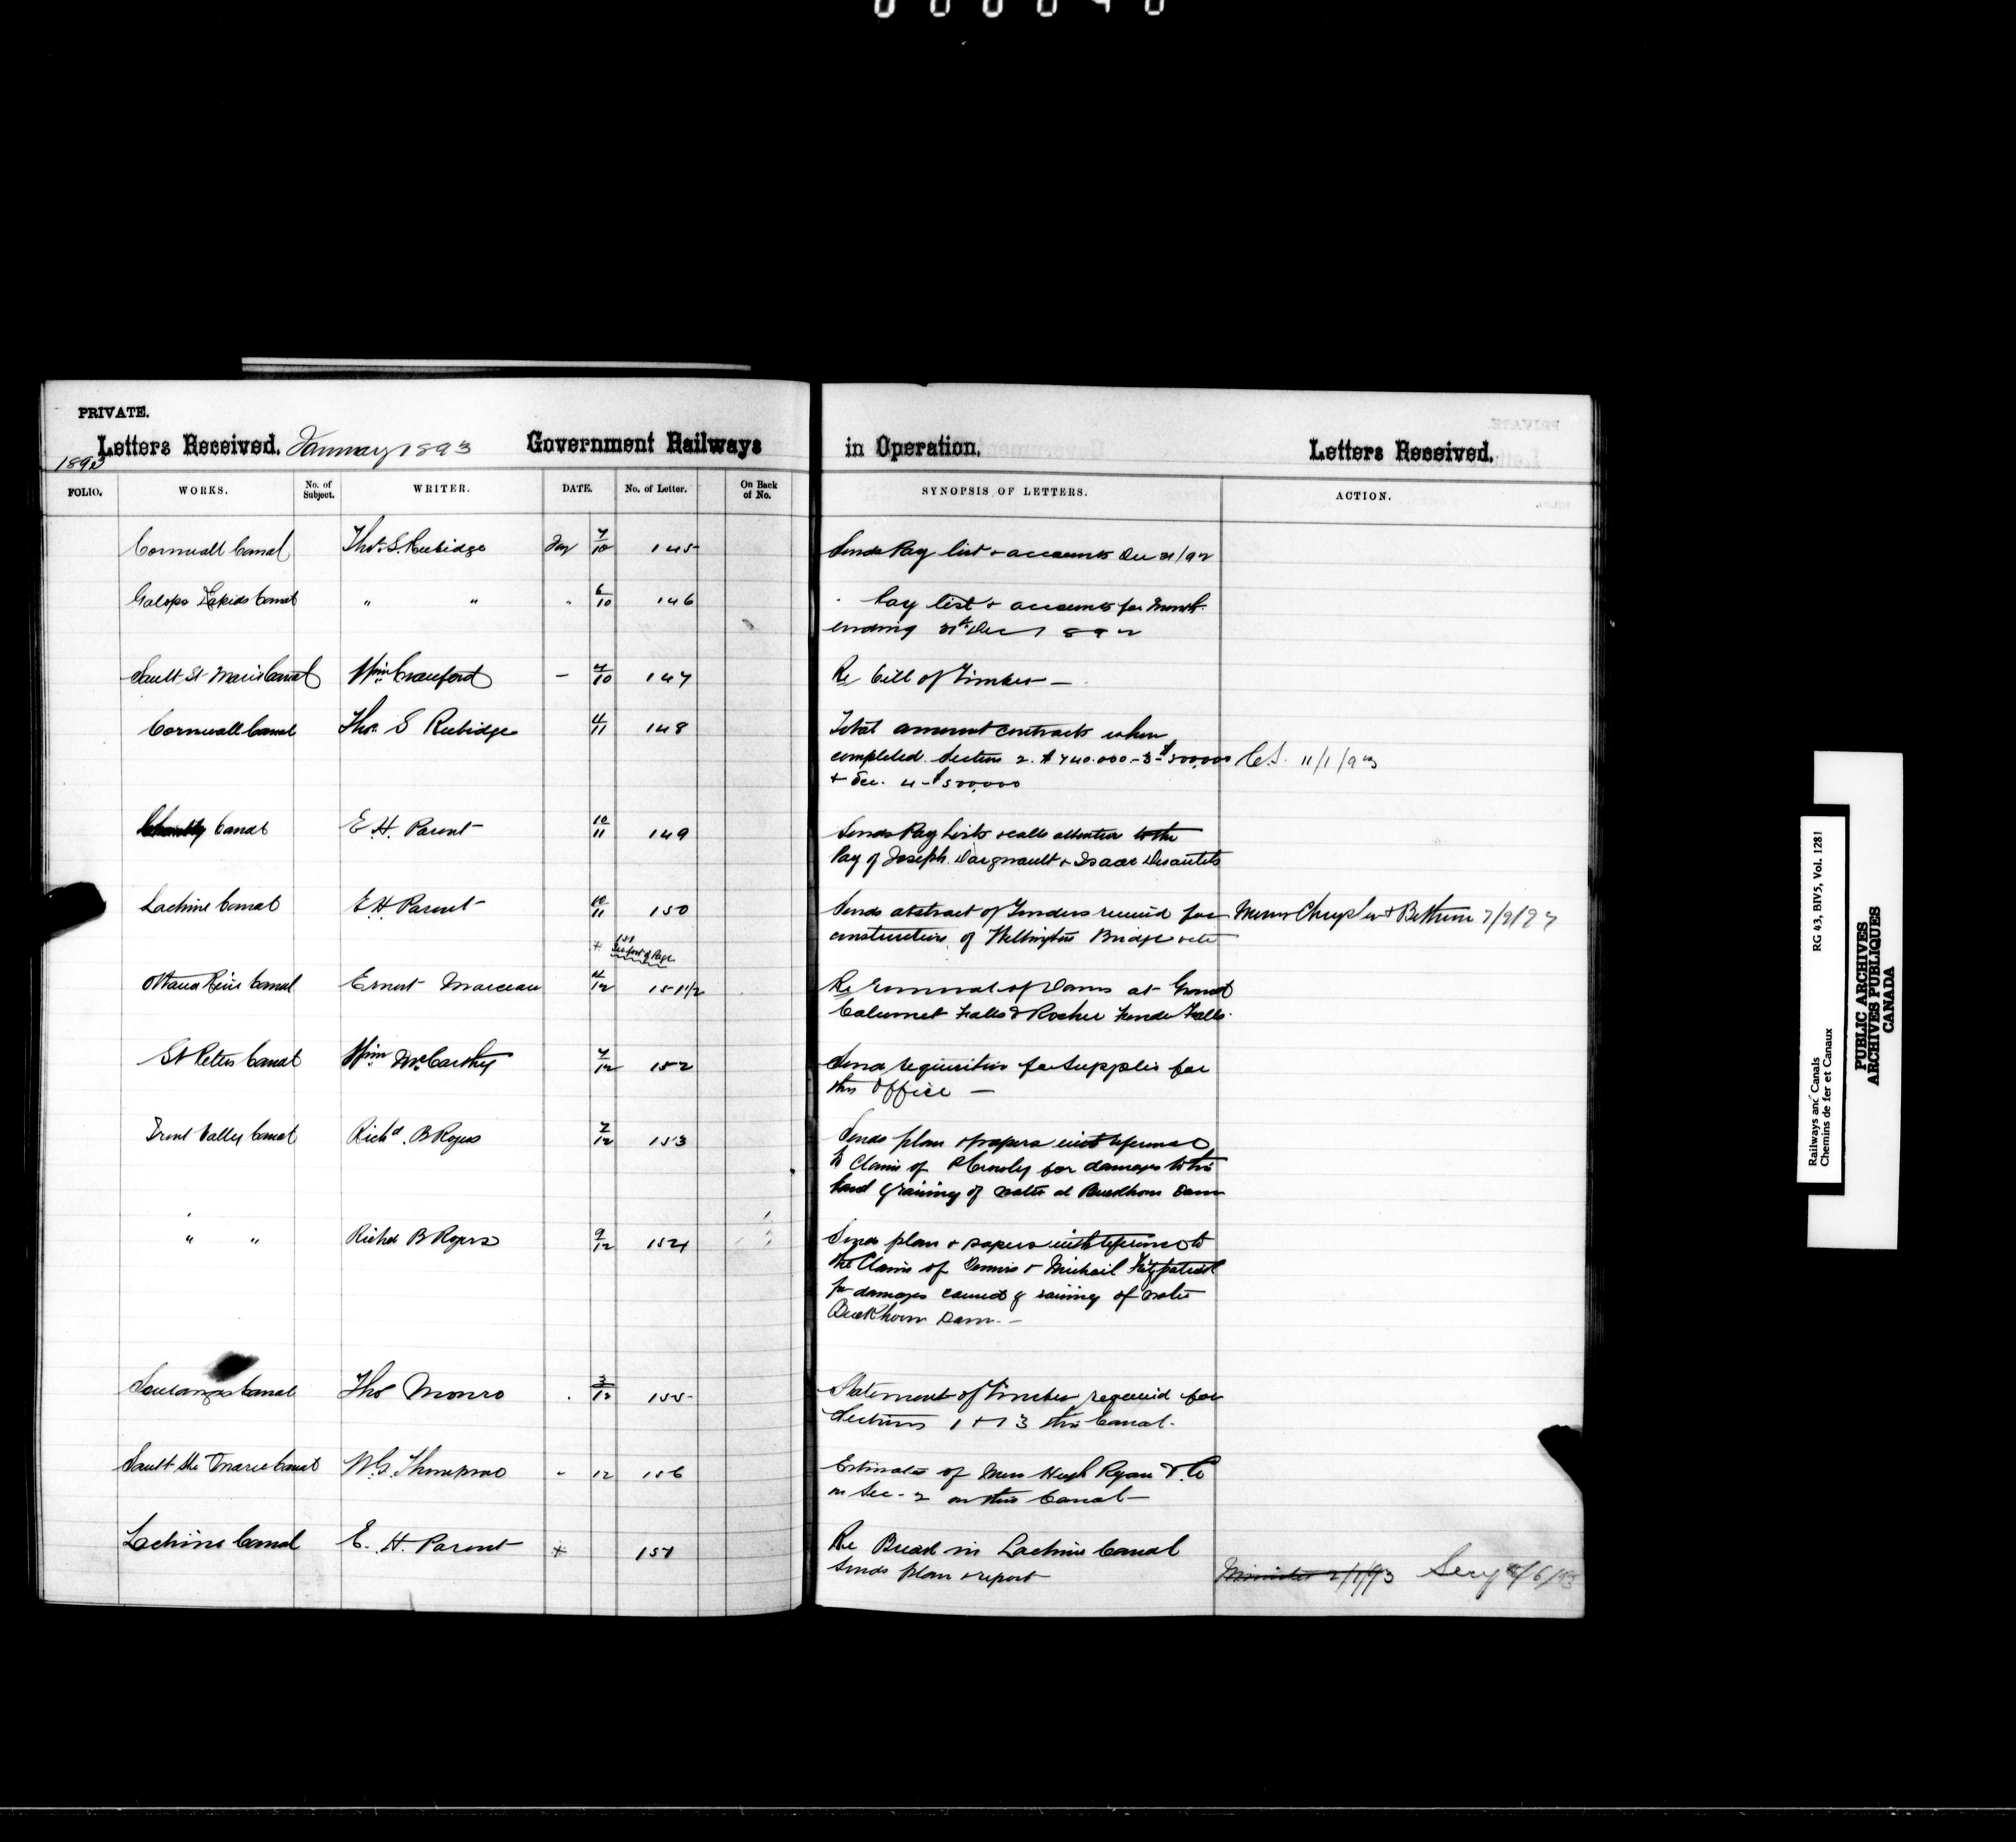 PRIVATE.
Letters Received. January 1893 Government Railways in Operation. Letters Received.
1893
FOLIO. WORKS. No. of Subject. WRITER. DATE. No. of Letter. On Back of No. SYNOPSIS OF LETTERS. ACTION.
Cornwall Canal Thos. S. Rubidge Jany 7/10 145 Sends Pay list & accounts Dec 31/92
Galops Rapids Canal " " " 6/10 146 " Pay list & accounts for Month
ending 31st Dec 1892
Sault St Marie Canal Wm Crawford – 4/10 147 Re bill of Timber —
Cornwall Canal Thos S Rubidge 4/11 148 Total amount contracts when
completed. Section 2. $740.000 - 3 - $500,000 C.S. 11/1/93
+ Sec. 4 - $500,000
Chambly Canal E. H. Parent 10/11 149 Sends Pay Lists & calls attention to the
Pay of Joseph Daignault & Isaac Desautels
Lachine Canal E. H. Parent 10/11 150 Sends abstract of Tenders received for Messrs Chrysler & Bethune
construction of Wellington Bridge
+ 151 See foot of Page
Ottawa River Canal Ernest Marceau 4/12 151 1/2 Re removal of Dams at Grand
Calumet Falls & Rocher Fendu Falls.
St Peters Canal Wm McCarthy 7/12 152 Send requisition for supplies for
this Office —
Trent Valley Canal Richd. B Rogers 7/12 153 Sends plan & papers with reference
to Claim of for damages to his
land by raising of water at Buckhorn Dam
" " Richd B Rogers 9/12 154 Sends plan & papers with reference to
the Claim of Dennis & Michail Fitzpatrick
for damages caused by raising of water
Buckhorn Dam. —
Soulanges Canal Thos Monro " 3/12 155 Statement of Timber required for
Sections 1 & 13 this Canal.
Sault Ste Marie Canal W. G. Thompson " 12 156 Estimates of Mess Hugh Ryan & Co
on Sec - 2 on this Canal —
Lachine Canal E. H. Parent + 151 Re Break in Lachine Canal
Sends plan & report Minister 2/1/93 Secy
Railways and Canals RG 43, BIV5, Vol. 1281
Chemins de fer et Canaux
PUBLIC ARCHIVES
ARCHIVES PUBLIQUES
CANADA